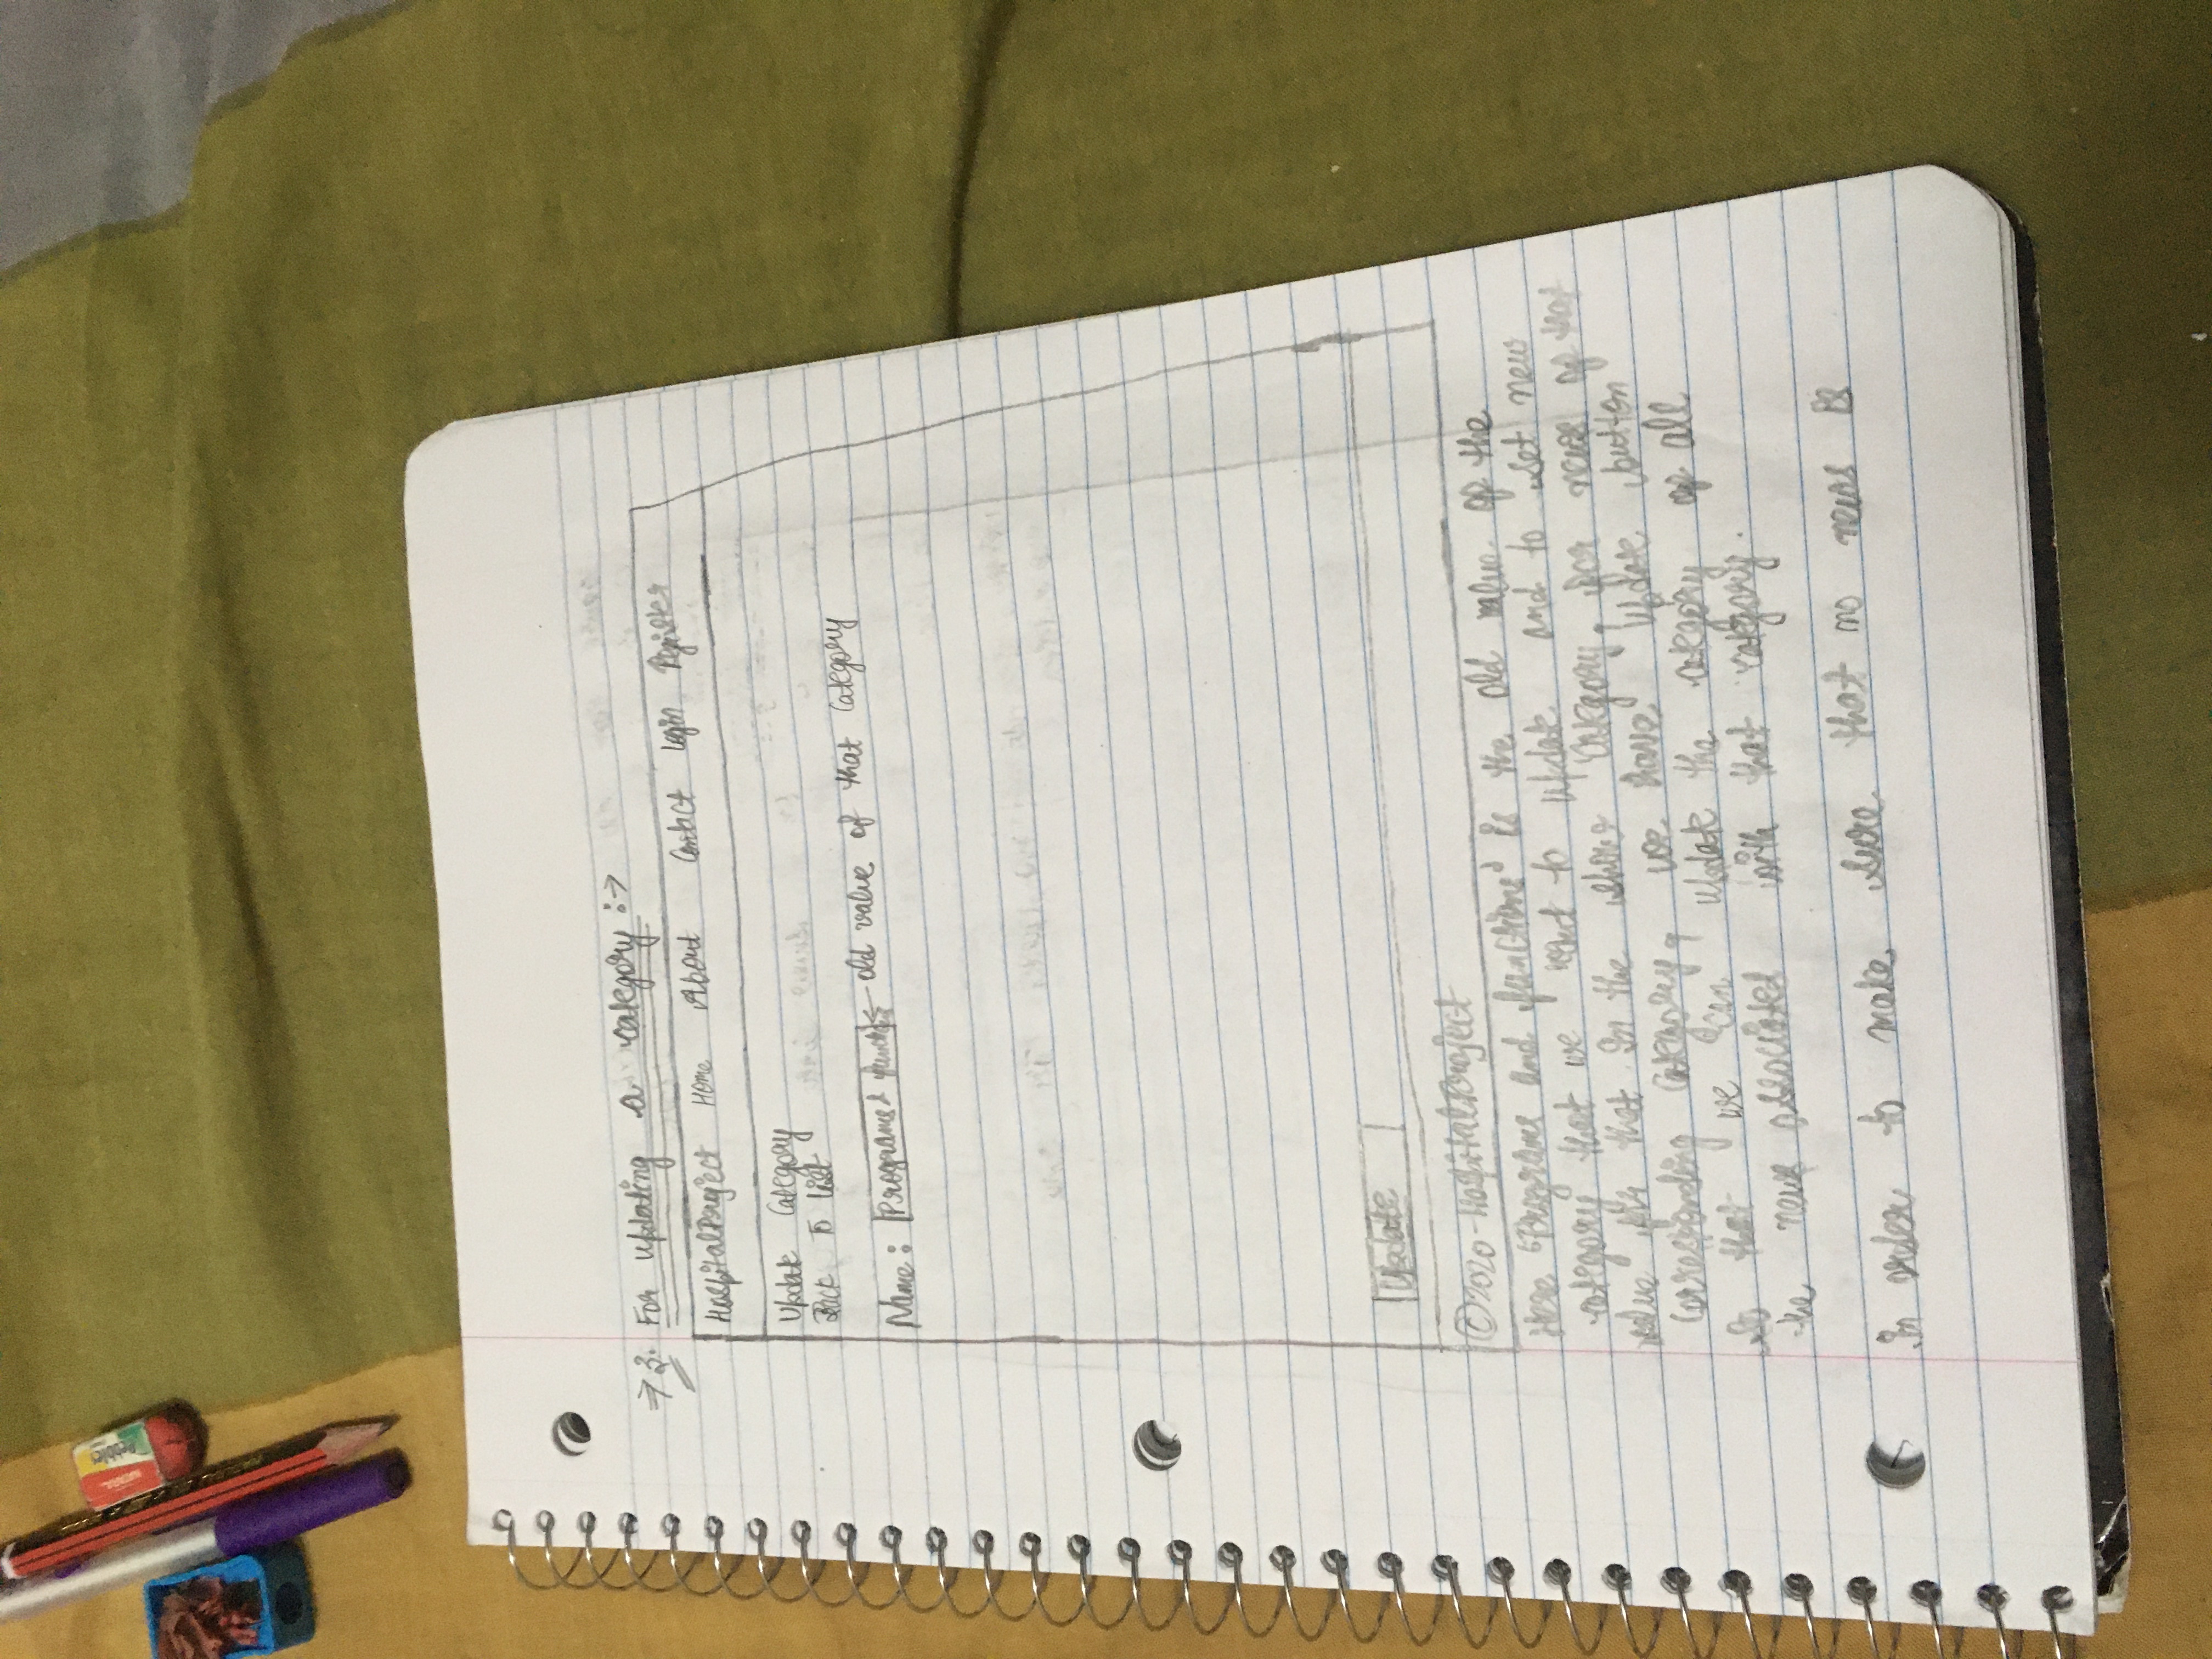 ⇒ 3. For Updating a category :→
HospitalProject Home About Contact Login Register
Update Category
Back To List
Name: Programs & functions ← old value of that Category
Update
©2020-HospitalProject
Here "Programs and functions" is the old value of the
category that we want to update and to set new
value for that. In the show category, for news of that
Corresponding Category, we have Update button
so that we can update the category of all
the news associated with that category.
In order to make sure that no news is